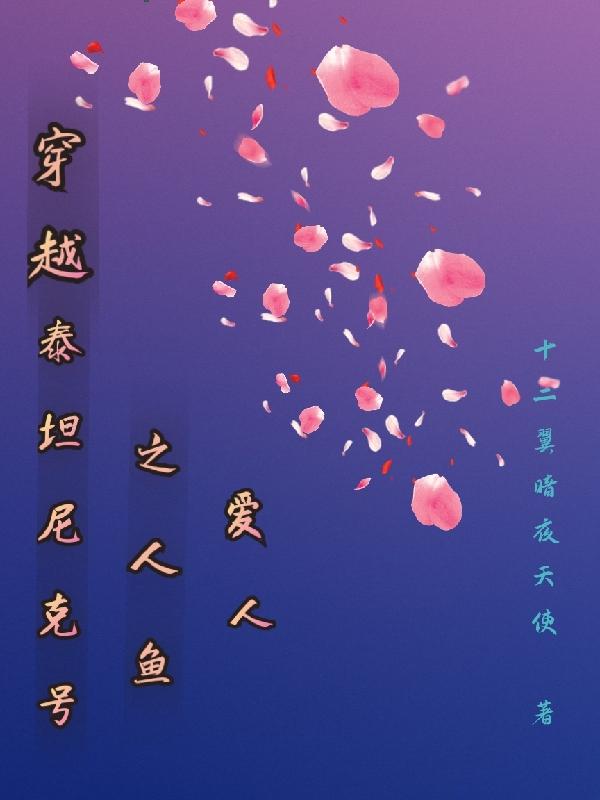 穿越泰坦尼克号
之人鱼
爱人
十二翼暗夜天使 著